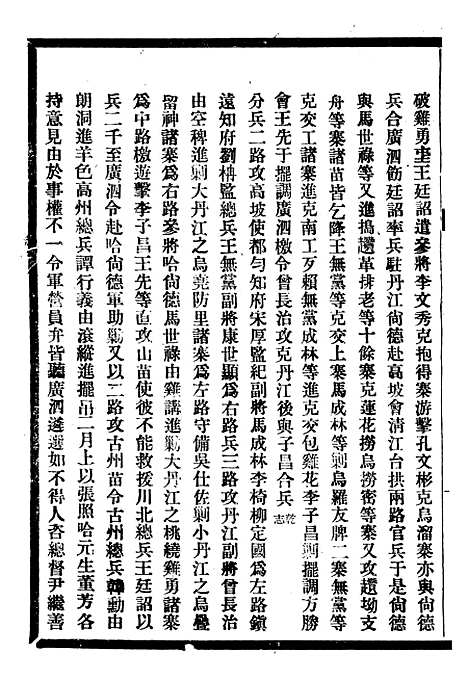 破雞勇圭王廷詔遣參將李文秀克抱得寨游擊孔文彬克烏溜寨亦與尙德
兵合廣泗飭廷詔率兵駐丹江尙德赴高坡會清江台拱兩路官兵于是尙德
與馬世祿等又進搗遺革排老等十餘寨克蓮花撈烏撈密等寨又攻遺坳支
舟等寨諸苗皆乞降王無黨等克交上寨馬成林等剿烏羅友牌二寨無黨等
克交工諸寨進克南工歹賴無黨成林等進克交包雞花李子昌剿擺調方勝
會王先于擺調廣泗檄令曾長治攻克丹江後與子昌合兵乾志
分兵二路攻高坡使都勻知府宋厚監紀副將馬成林李椅柳定國爲左路鎭
遠知府劉枏監總兵王無黨副將康世顯爲右路兵三路攻丹江副將曾長治
由空稗進剿大丹江之烏堯防里諸寨爲左路守備吳仕佐剿小丹江之烏疊
留神諸寨爲右路參將哈尙德馬世祿由雞講進剿大丹江之桃繞雞勇諸寨
爲中路檄遊擊李子昌王先等直攻山苗使彼不能救援川北總兵王廷詔以
兵二千至廣泗令赴哈尙德軍助剿又以二路攻古州苗令古州總兵韓勳由
朗洞進羊色高州總兵譚行義由滾縱進擺吊二月上以張照哈元生董芳各
持意見由於事權不一令軍營員弁皆聽廣泗遴選如不得人咨總督尹繼善